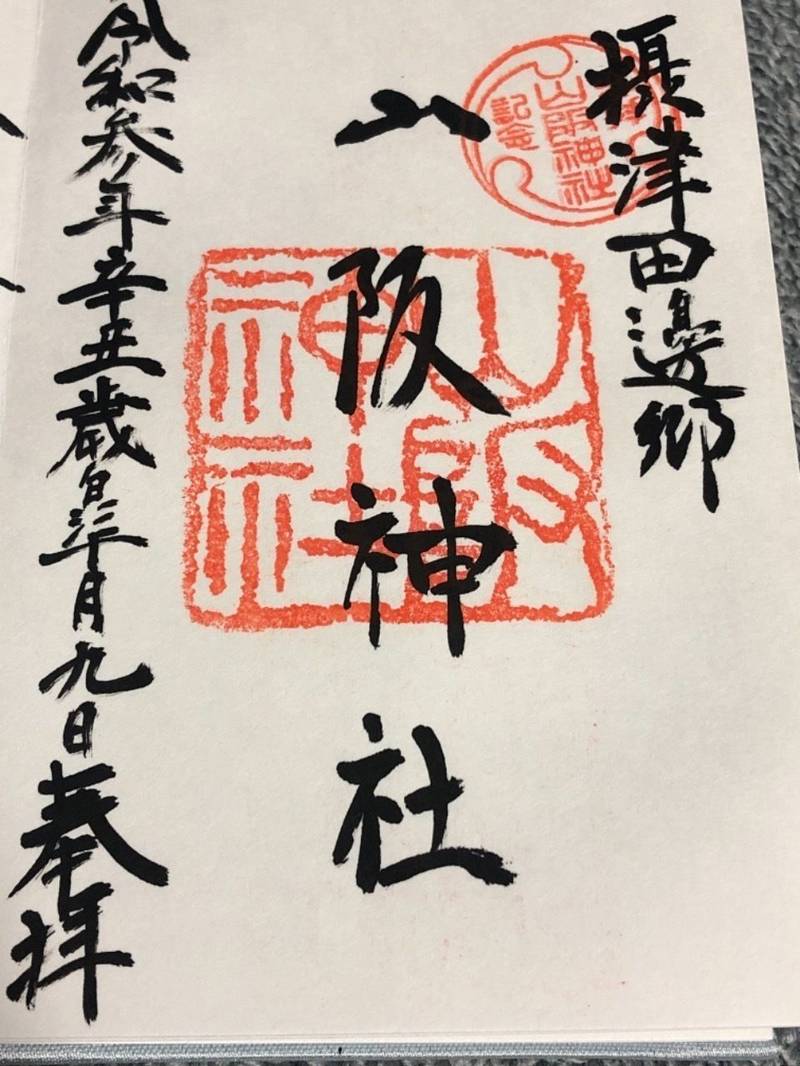 摂津田邊郷
山阪神社
令和参年辛丑歳皐月九日奉拝
山阪神社
記念
山阪神社